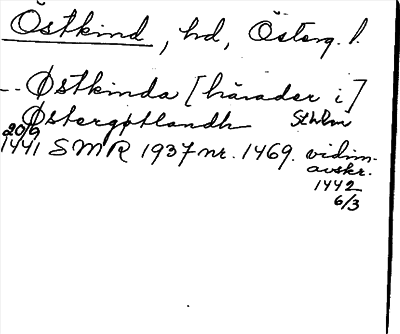 Östkind, hd, Österg. l.
-- Østkinda [härader i]
Østergøtlandh Sthlm
20/9
1441 SMR 1937 nr. 1469. vidim.
avskr.
1442
6/3